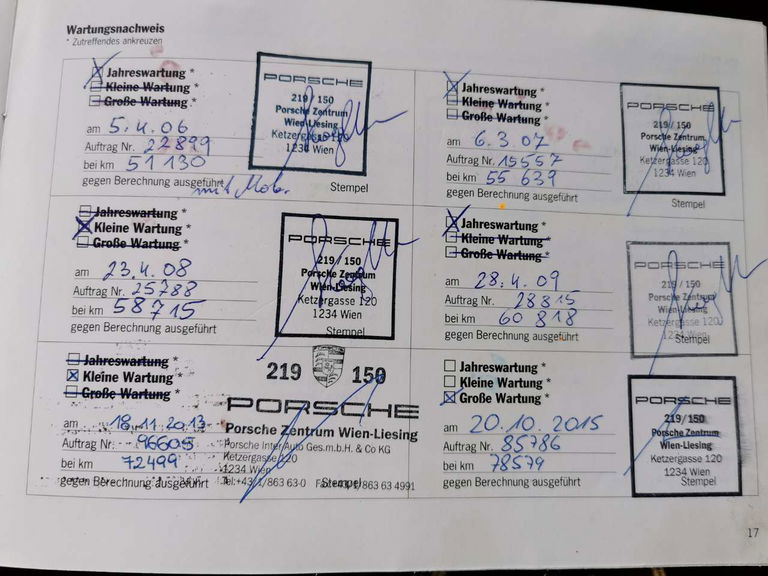 Wartungsnachweis
* Zutreffendes ankreuzen
Jahreswartung *
Kleine Wartung *
Große Wartung *
am 5.4.06
Auftrag Nr. 22899
bei km 51130
gegen Berechnung ausgeführt
mit Mob.
PORSCHE
219/150
Porsche Zentrum
Wien-Liesing
Ketzergasse 120
1234 Wien
Stempel
Jahreswartung *
Kleine Wartung *
Große Wartung *
am 6.3.07
Auftrag Nr. 15557
bei km 55 639
gegen Berechnung ausgeführt
PORSCHE
219/150
Porsche Zentrum
Wien-Liesing
Ketzergasse 120
1234 Wien
Stempel
Jahreswartung *
Kleine Wartung *
Große Wartung *
am 23.4.08
Auftrag Nr. 25788
bei km 58715
gegen Berechnung ausgeführt
PORSCHE
219/150
Porsche Zentrum
Wien-Liesing
Ketzergasse 120
1234 Wien
Stempel
Jahreswartung *
Kleine Wartung *
Große Wartung *
am 28.4.09
Auftrag Nr. 28815
bei km 60 818
gegen Berechnung ausgeführt
PORSCHE
219/150
Porsche Zentrum
Wien-Liesing
Ketzergasse 120
1234 Wien
Stempel
Jahreswartung *
Kleine Wartung *
Große Wartung *
am 18.11.2013
Auftrag Nr. 96605
bei km 72499
gegen Berechnung ausgeführt
219 150
PORSCHE
Porsche Zentrum Wien-Liesing
Porsche Inter Auto Ges.m.b.H. & Co KG
Ketzergasse 120
1234 Wien
Tel:+43/1/863 63-0 Fax:+43/1/863 63 4991
Stempel
Jahreswartung *
Kleine Wartung *
Große Wartung *
am 20.10.2015
Auftrag Nr. 85786
bei km 78579
gegen Berechnung ausgeführt
PORSCHE
219/150
Porsche Zentrum
Wien-Liesing
Ketzergasse 120
1234 Wien
Stempel
17